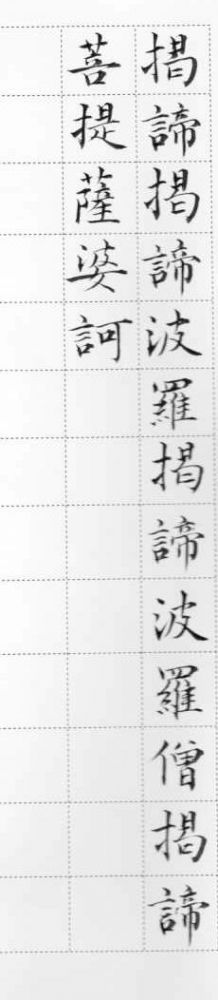 揭諦揭諦波羅揭諦波羅僧揭諦
菩提薩婆訶